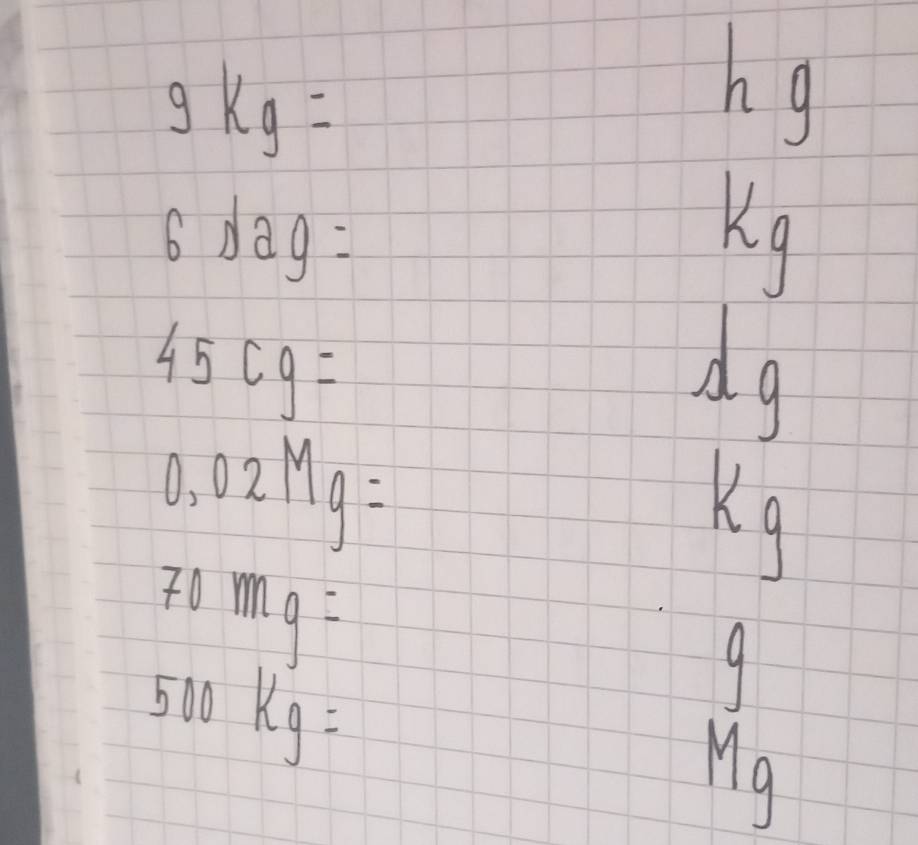 9 Kg = hg
6 dag = Kg
45 cg = dg
0,02 Mg = Kg
70 mg = g
500 Kg = Mg